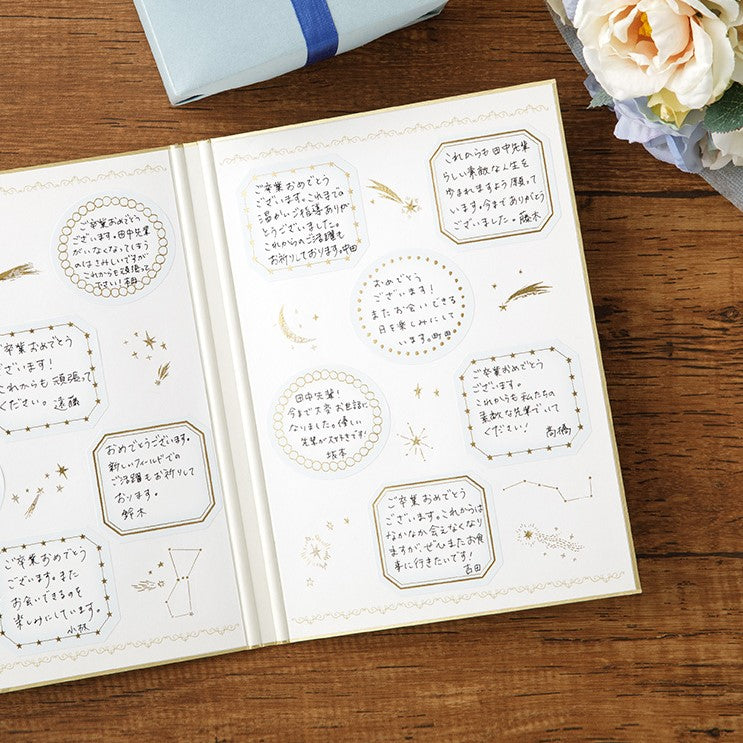 ご卒業おめでとう
ございます。田中先輩
がいなくなってしまう
のはさみしいですが
これからも頑張って
下さい!
ご卒業おめでとう
ございます!
これからも頑張って
ください。遠藤
おめでとうございます。
新しいフィールドでの
ご活躍もお祈りして
おります。
鈴木
ご卒業おめでとう
ございます。また
お会いできるのを
楽しみにしています。
小林
ご卒業おめでとう
ございます。これまでの
温かいご指導ありが
とうございました。
これからのご活躍も
お祈りしております。中田
これからも田中先輩
らしい素敵な人生を
歩まれますよう願って
います。今までありがとう
ございました。藤木
おめでとう
ございます!
またお会いできる
日を楽しみにして
います。町田
田中先輩!
今まで大変お世話に
なりました。優しい
先輩が大好きです!
坂本
ご卒業おめでとう
ございます。
これからも私たちの
素敵な先輩でいて
ください!
高橋
ご卒業おめでとう
ございます。これからは
なかなか会えなくなり
ますが、ぜひまたお食
事に行きたいです!
吉田